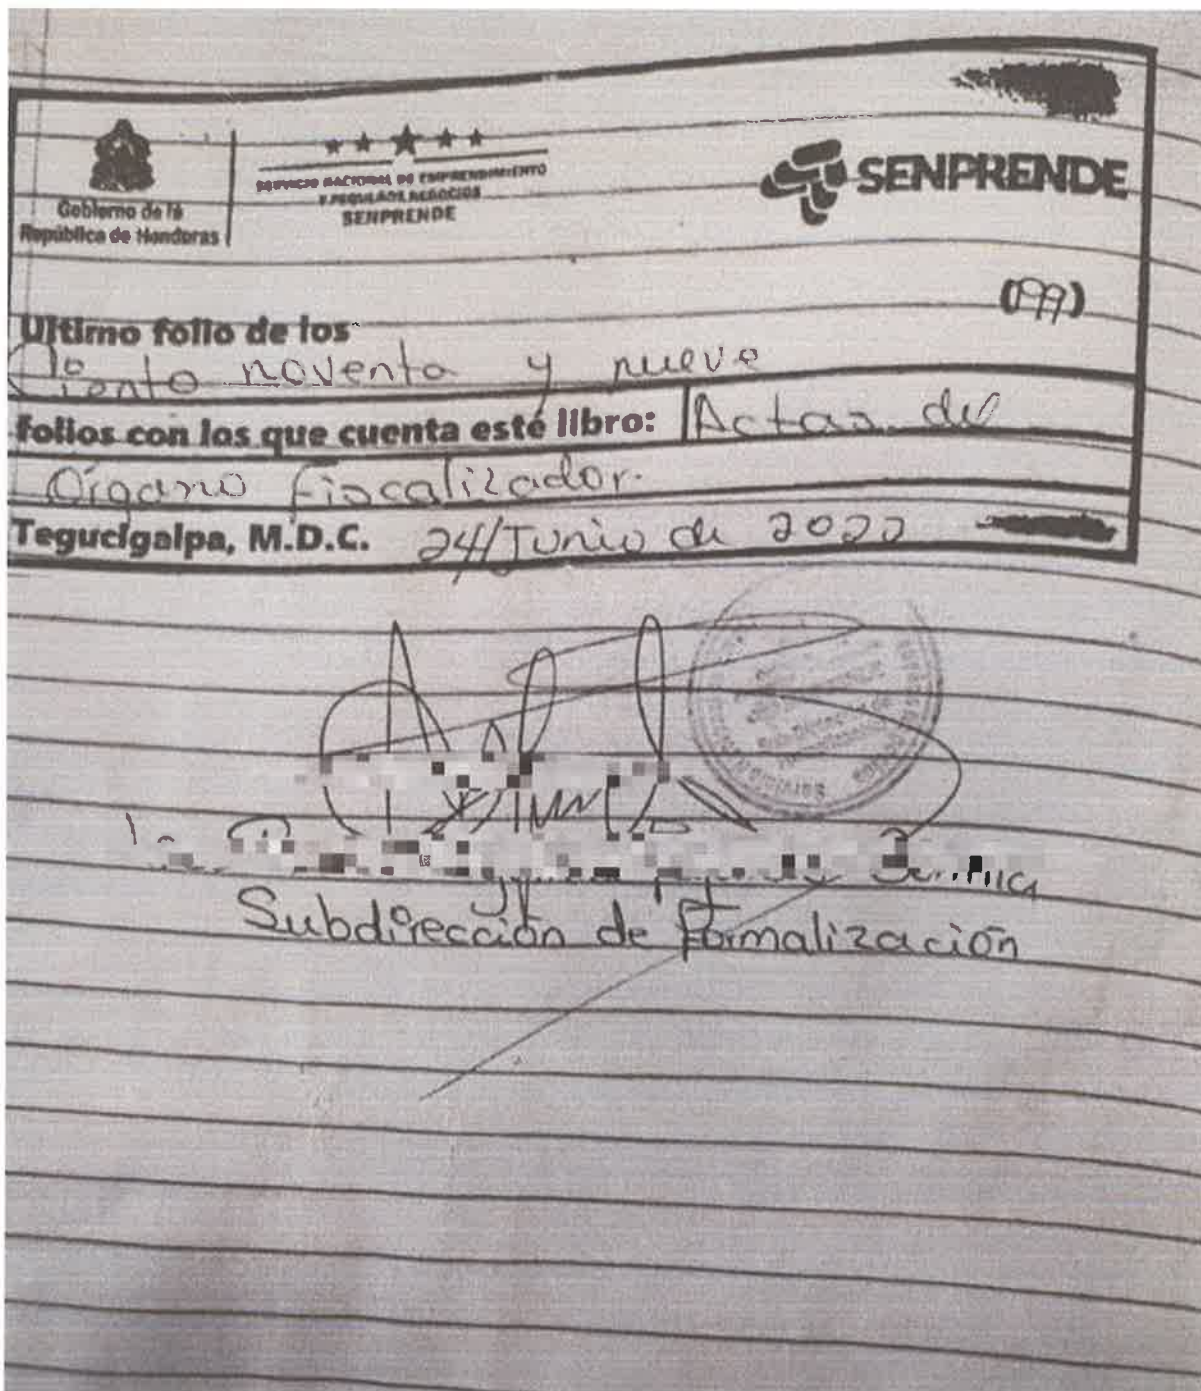 Gobierno de la
República de Honduras
SERVICIO NACIONAL DE EMPRENDIMIENTO
Y PEQUEÑOS NEGOCIOS
SENPRENDE
SENPRENDE
(199)
Ultimo folio de los
Ciento noventa y nueve
folios con los que cuenta esté libro: Actas del
Órgano Fiscalizador.
Tegucigalpa, M.D.C. 24/Junio de 2022
Subdirección de Formalización